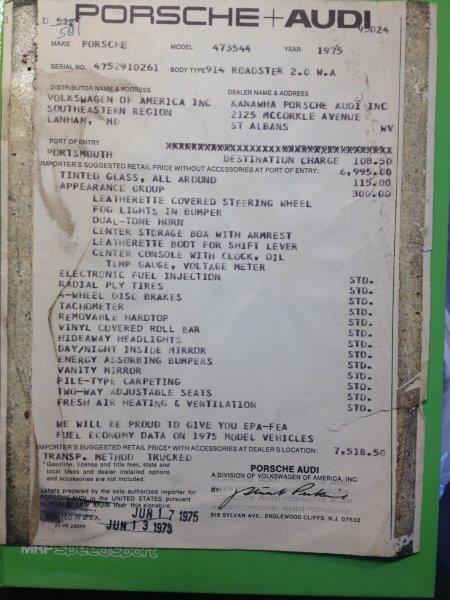 PORSCHE+AUDI
95024
MAKE PORSCHE MODEL 473544 YEAR 1975
SERIAL NO. 4752910261 BODY TYPE 914 ROADSTER 2.0 W.A
DISTRIBUTOR NAME & ADDRESS DEALER NAME & ADDRESS
VOLKSWAGEN OF AMERICA INC KANAWHA PORSCHE AUDI INC
SOUTHEASTERN REGION 2125 MCCORKLE AVENUE
LANHAM, MD ST ALBANS WV
PORT OF ENTRY
PORTSMOUTH DESTINATION CHARGE 108.50
IMPORTER'S SUGGESTED RETAIL PRICE WITHOUT ACCESSORIES AT PORT OF ENTRY: 6,995.00
TINTED GLASS, ALL AROUND 115.00
APPEARANCE GROUP 300.00
LEATHERETTE COVERED STEERING WHEEL
FOG LIGHTS IN BUMPER
DUAL-TONE HORN
CENTER STORAGE BOX WITH ARMREST
LEATHERETTE BOOT FOR SHIFT LEVER
CENTER CONSOLE WITH CLOCK, OIL
TEMP GAUGE, VOLTAGE METER
ELECTRONIC FUEL INJECTION STD.
RADIAL PLY TIRES STD.
4-WHEEL DISC BRAKES STD.
TACHOMETER STD.
REMOVABLE HARDTOP STD.
VINYL COVERED ROLL BAR STD.
HIDEAWAY HEADLIGHTS STD.
DAY/NIGHT INSIDE MIRROR STD.
ENERGY ABSORBING BUMPERS STD.
VANITY MIRROR STD.
PILE-TYPE CARPETING STD.
TWO-WAY ADJUSTABLE SEATS STD.
FRESH AIR HEATING & VENTILATION STD.
WE WILL BE PROUD TO GIVE YOU EPA-FEA
FUEL ECONOMY DATA ON 1975 MODEL VEHICLES
IMPORTER'S SUGGESTED RETAIL PRICE* WITH ACCESSORIES AT DEALER'S LOCATION: 7,518.50
TRANSP. METHOD TRUCKED
*Gasoline, license and title fees, state and
local taxes and dealer installed options
and accessories are not included.
PORSCHE AUDI
A DIVISION OF VOLKSWAGEN OF AMERICA, INC.
BY:
Labels prepared by the sole authorized importer for
PORSCHE AUDI in the UNITED STATES pursuant
to PUBLIC LAW bear this signature.
818 SYLVAN AVE., ENGLEWOOD CLIFFS, N.J. 07632
JUN 17 1975
PRINTED IN U.S.A.
JUN 13 1975
22-99-20090
MRP speedsport